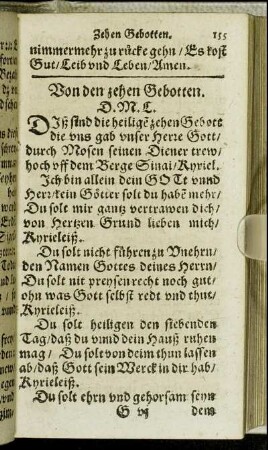 Zehen Gebotten. 155
nimmermehr zu rücke gehn / Es kost
Gut / Leib vnd Leben / Amen.
Von den zehen Gebotten.
D. M. L.
DIß sind die heiligē zehen Gebott
die vns gab vnser Herre Gott /
durch Mosen seinen Diener trew /
hoch vff dem Berge Sinai / Kyriel.
Ich bin allein dein GOTt vnnd
Herr / kein Götter solt du habē mehr /
Du solt mir gantz vertrawen dich /
von Hertzen Grund lieben mich /
Kyrieleiß.
Du solt nicht führen zu Vnehrn /
den Namen Gottes deines Herrn /
Du solt nit preysen recht noch gut /
ohn was Gott selbst redt vnd thut /
Kyrieleiß.
Du solt heiligen den siebenden
Tag / daß du vnnd dein Hauß ruhen
mag / Du solt von deim thun lassen
ab / daß Gott sein Werck in dir hab /
Kyrieleiß.
Du solt ehrn vnd gehorsam seyn
G vij dem